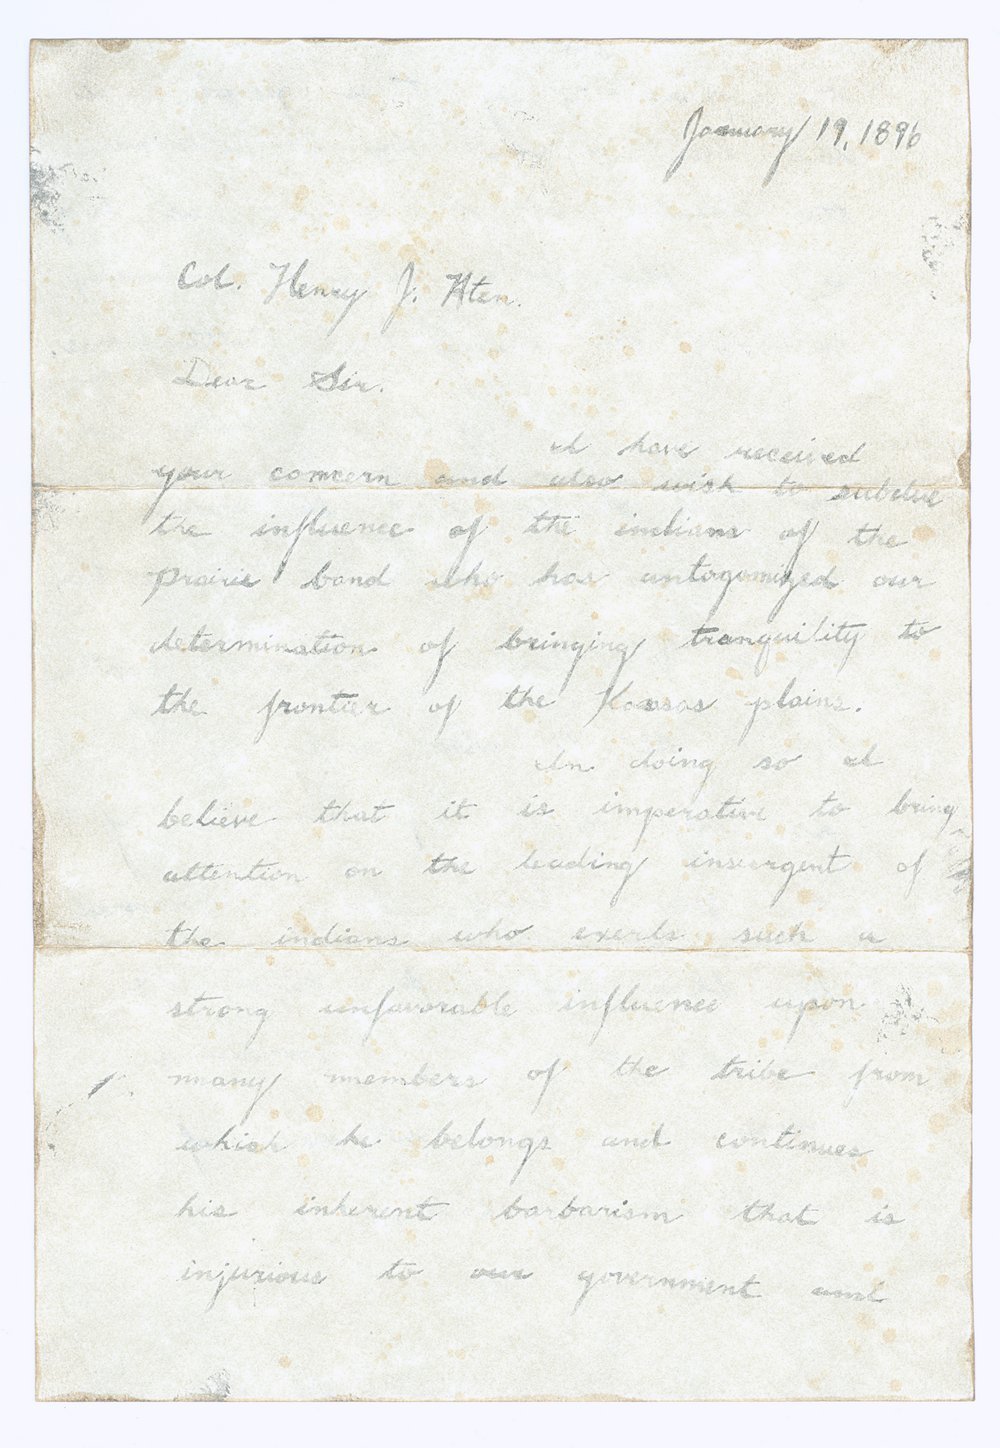 January 19, 1896
Col. Henry J. Aten.
Dear Sir.
I have received
your concern and also wish to subdue
the influence of the indians of the
Prairie band who has antagonized our
determination of bringing tranquility to
the frontier of the Kansas plains.
In doing so I
believe that it is imperative to bring
attention on the leading insurgent of
the indians who exerts such a
strong unfavorable influence upon
many members of the tribe from
which he belongs and continues
his inherent barbarism that is
injurious to our government and